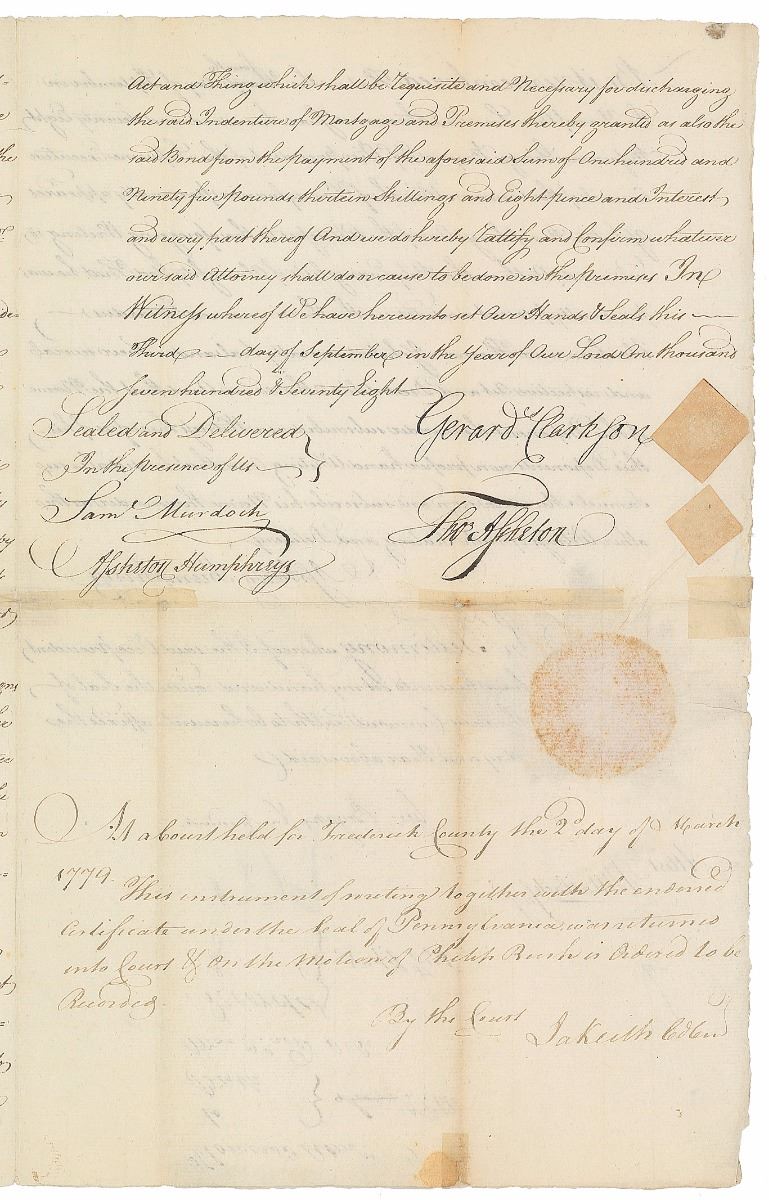 Act and Thing which shall be requisite and Necessary for discharging
the said Indenture of Mortgage and Premises thereby granted as also the
said Bond from the payment of the aforesaid Sum of One hundred and
Ninety five pounds thirteen Shillings and Eight pence and Interest
and every part thereof And we do hereby rattify and Confirm whatever
our said Attorney shall do or cause to be done in the premises In
Witness whereof We have hereunto set Our Hands & Seals this
Third day of September in the Year of Our Lord One thousand
Seven hundred & Seventy Eight
Sealed and Delivered
In the presence of Us
Gerard. Clarkson
Saml. Murdoch
Thos. Assheton
Assheton Humphreys
At a Court held for Frederick County the 2d. day of March
1779.
This instrument of writing together with the endorsed
Certificate under the Seal of Pennsylvania was returned
into Court & on the Motion of Philip Bush is Ordered to be
Recorded.
By the Court
Ja Keith